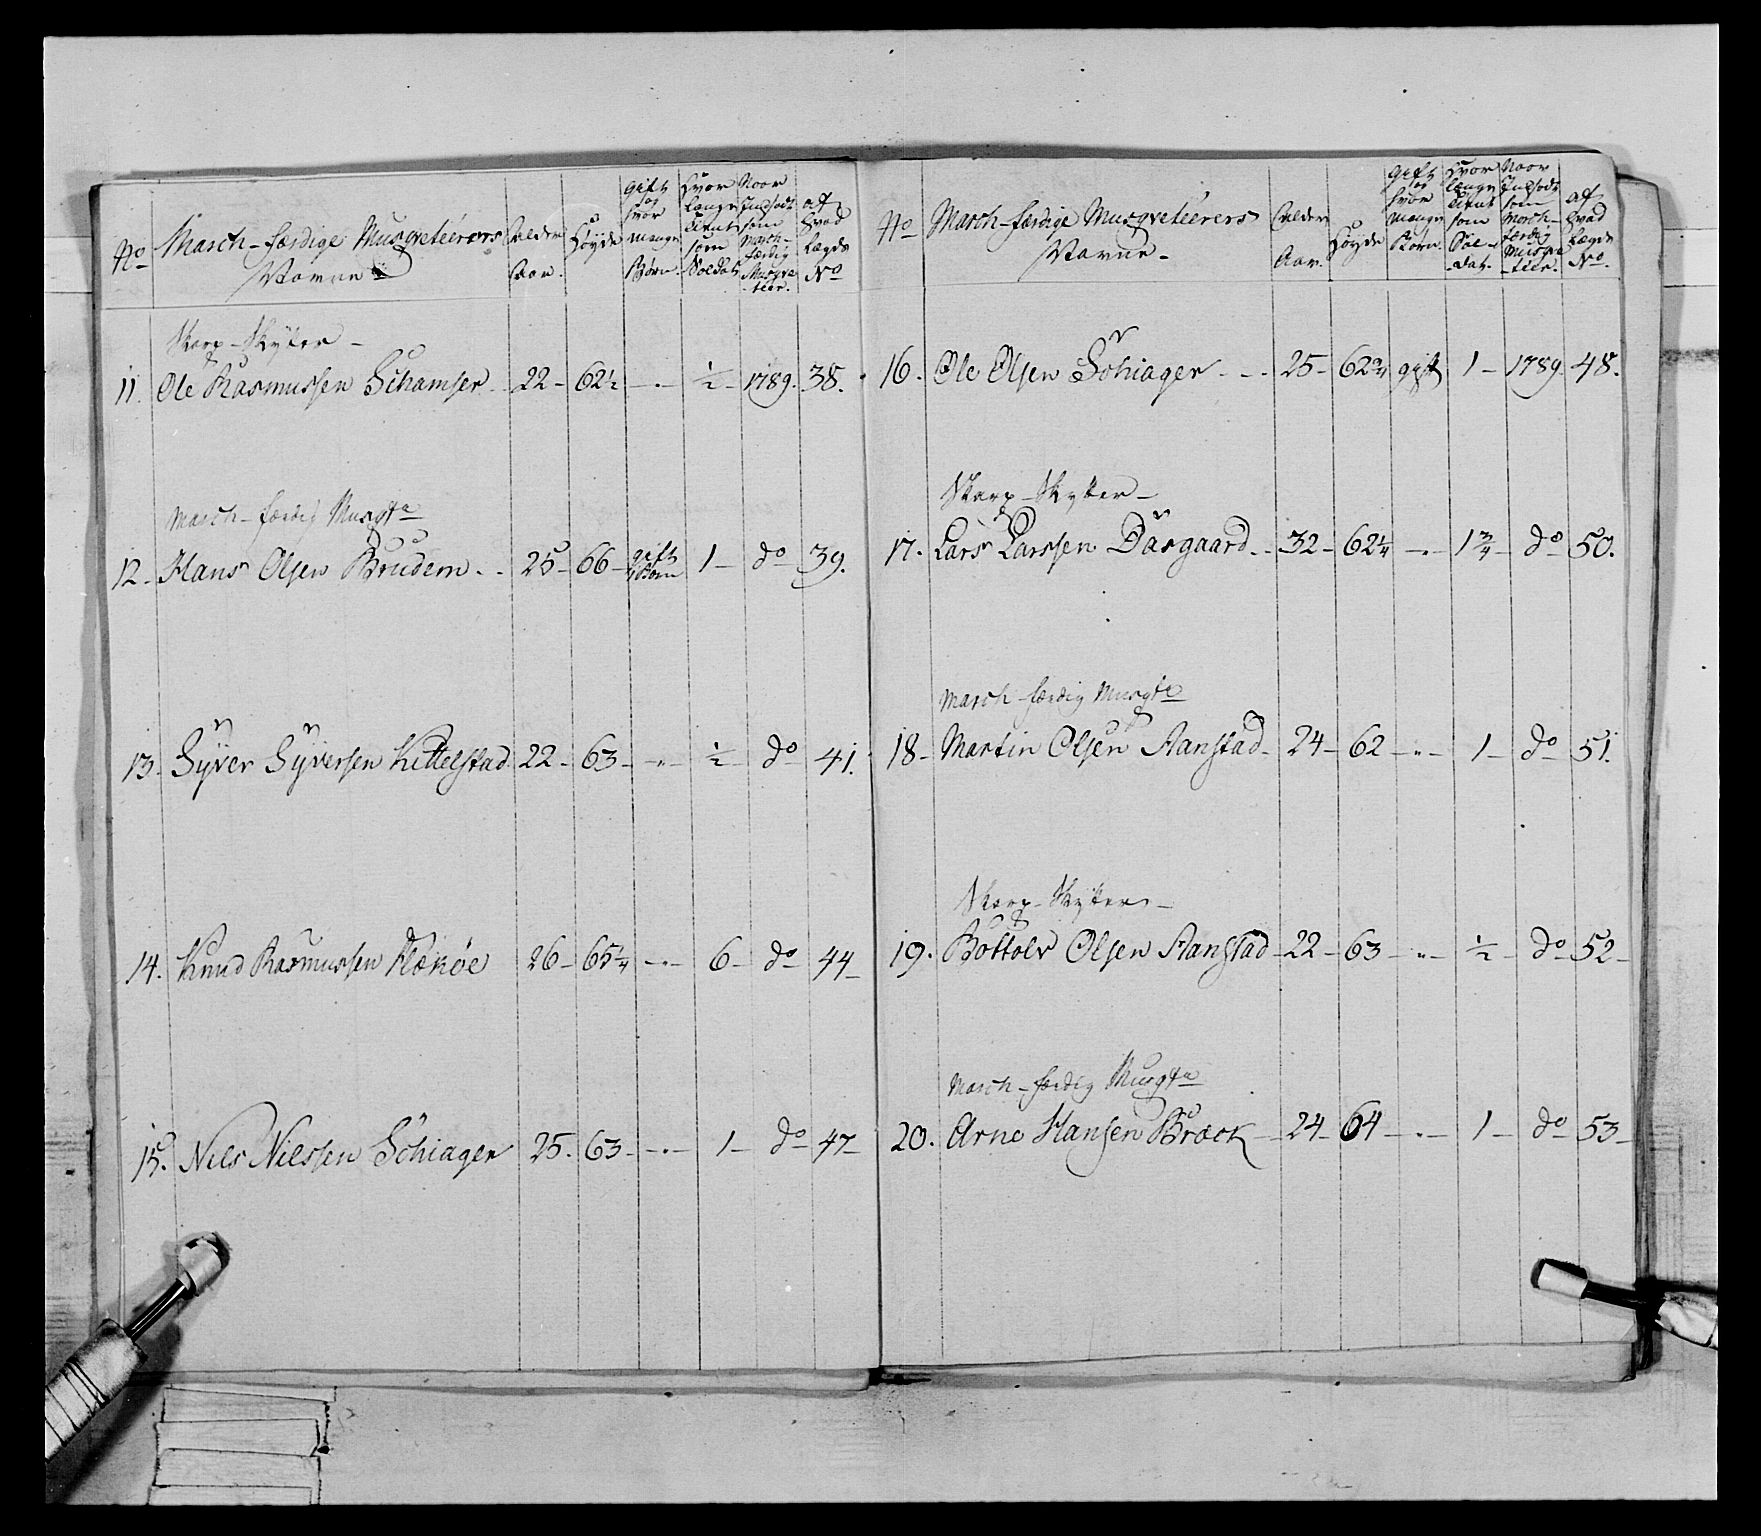 No
March-færdige Musqveteerers
Navne
Alder
Aar.
Høyde
gift
og
hvor
mange
Børn.
Hvor
længe
tient
som
Soldat
Naar
Indsadt
som
March-
færdig
Musqve
-teer.
af
hvad
Lægde
No
Skarp-Skytter-
11. Ole Rasmussen Schamser 22- 62½ -"- ½- 1789. 38.
March-færdig Musqte
12. Hans Olsen Brudem 25- 66- gift
4 Børn 1- do 39.
13. Syver Syversen Kittelstad 22- 63- -"- ½- do 41.
14. Knud Rasmussen Flækøe 26- 65¼ -"- 6- do 44-
15. Nels Nelssen Söhiager 25. 63- -"- 1- do 47-
No
March-færdige Musqveteerers
Navne-
Alder
Aar.
Høyde
gift
og
hvor
mange
Børn.
Hvor
længe
tient
som
Sol-
dat.
Naar
Indsadt
som
March-
færdig
Musqve
-teer.
af
hvad
Lægde
No.
16. Ole Olsen Söhiager - - 25- 62¾ gift 1- 1789. 48.
Skarp-Skytter-
17. Lars Larssen Dasgaard - 32- 62¼ -"- 1¾- do 50.
March-færdig Musqte
18- Martin Olsen Aanstad- 24- 62- -"- 1- do 51.
Skarp-Skytter-
19. Bottolv Olsen Aanstad- 22- 63- -"- ½- do 52-
March-færdig Musqte
20. Arne Hansen Bræck- 24- 64- -"- 1- do 53-